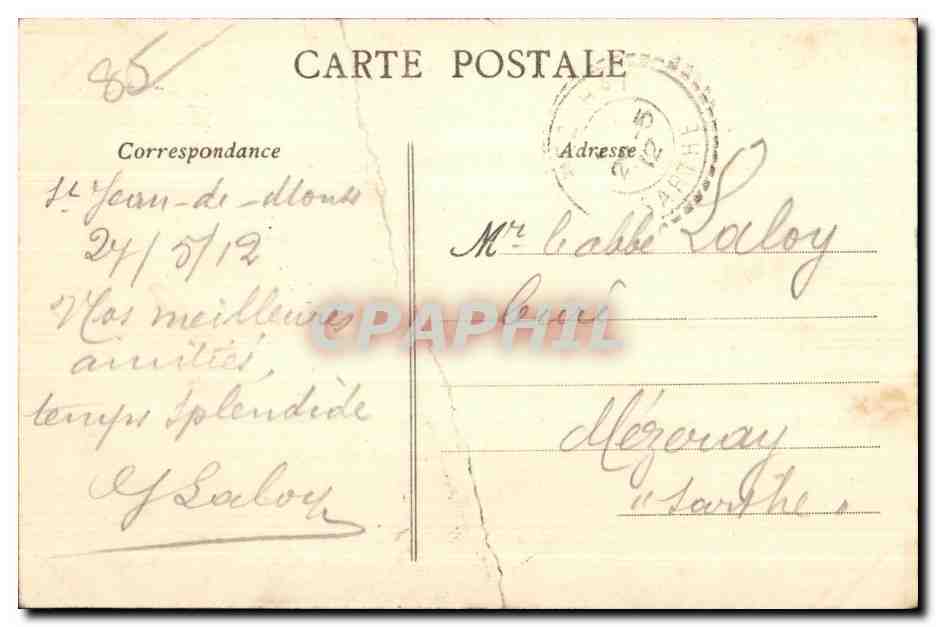 85
CARTE POSTALE
SARTHE
5
12
Correspondance
Adresse
St Jean-de-Monts
27/5/12
Nos meilleures
amitiés,
temps splendide
Laloy
Mr. l'abbé Laloy
Curé
Mézeray
"Sarthe"
CPAPHIL